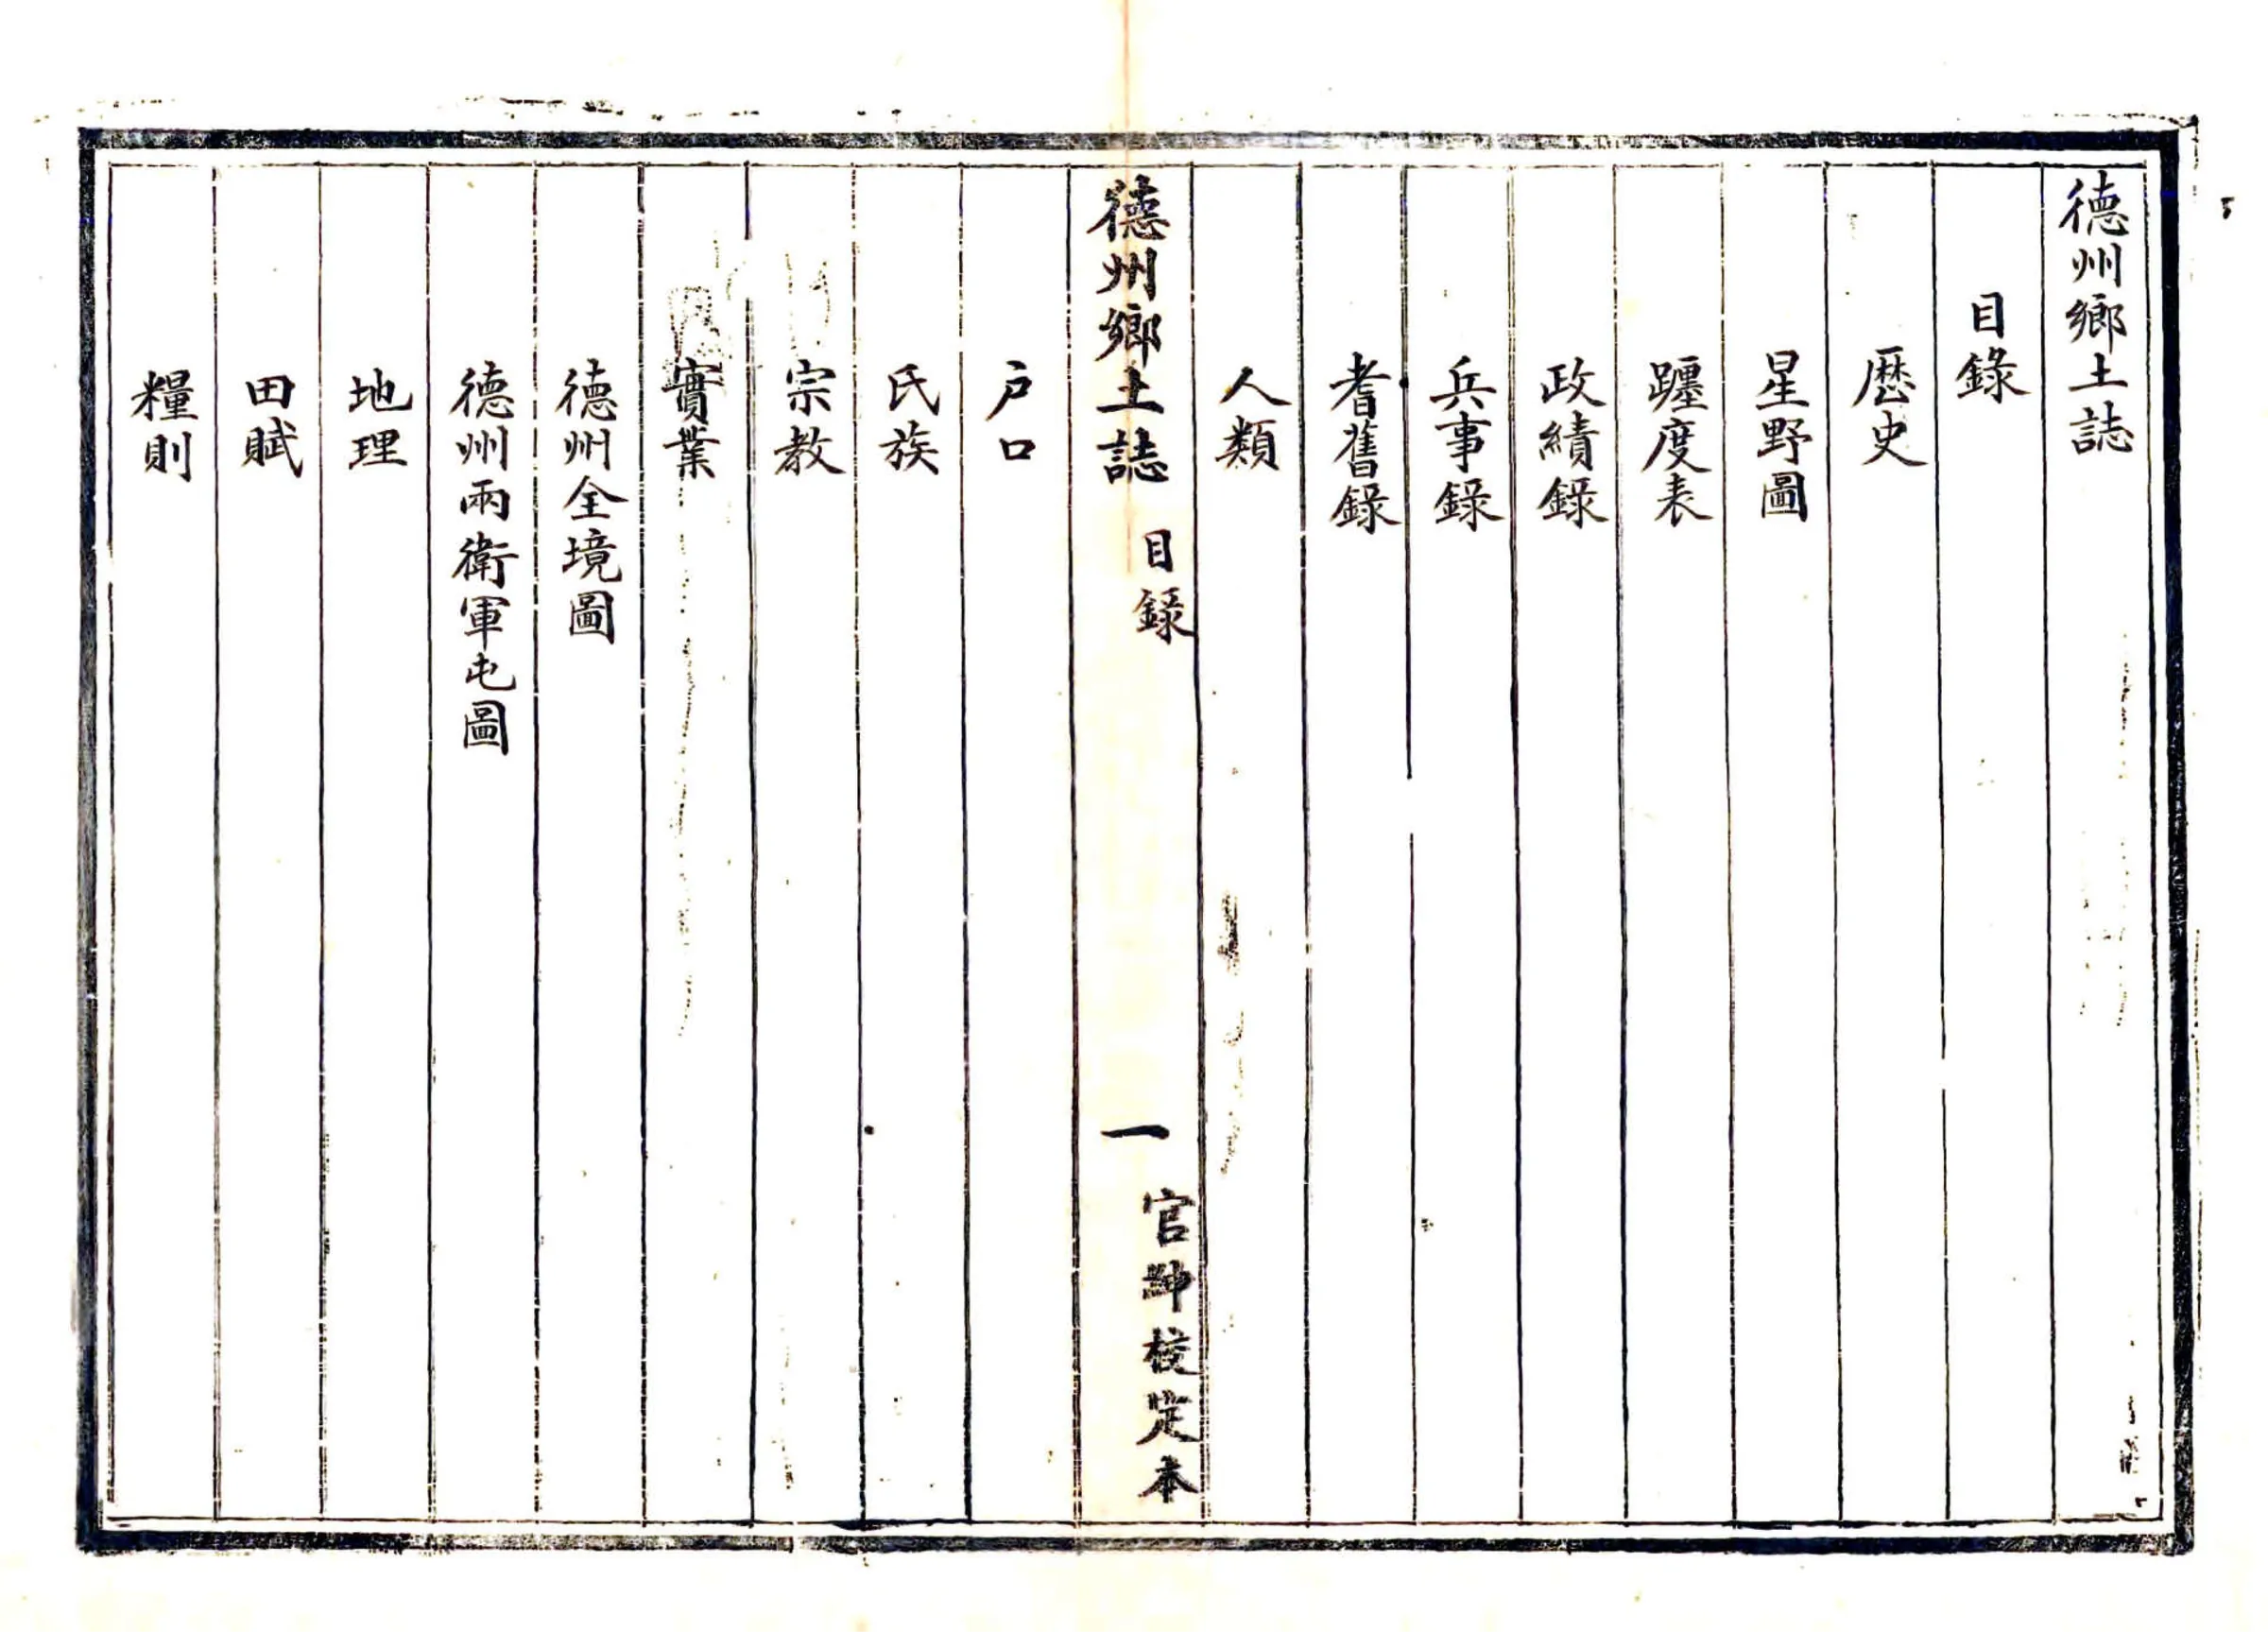 德州鄉土誌
目錄
歷史
星野圖
躔度表
政績錄
兵事錄
耆舊錄
人類
德州鄉土誌 目錄 一 官紳校定本
戶口
氏族
宗教
實業
德州全境圖
德州兩衛軍屯圖
地理
田賦
糧則